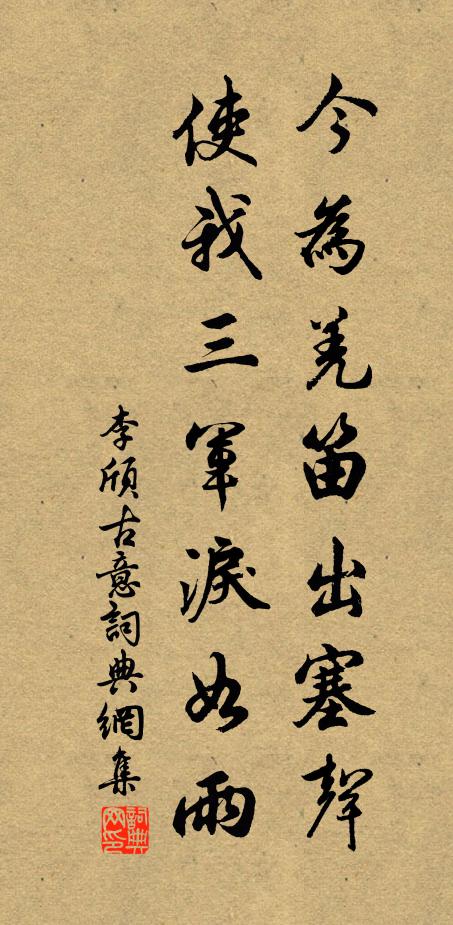 今為羌笛出塞聲
使我三軍淚如雨
李頎古意詞典網集
詞典
网印